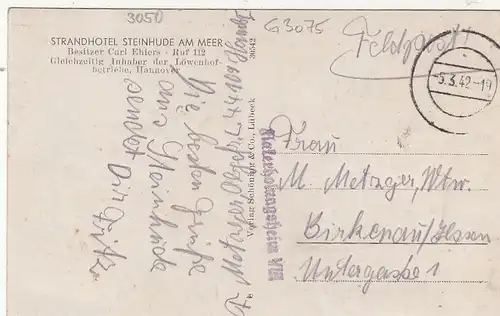 3050
G3075
STRANDHOTEL STEINHUDE AM MEER
Besitzer Carl Ehlers - Ruf 112
Gleichzeitig Inhaber der Löwenhof-
betriebe, Hannover
Feldpost!
-5.3.42-19
Die besten Grüße
aus Steinhude
sendet Dir Fritz
F. Metzger,
Verlag Schöning & Co., Lübeck
36542
Unterkunftsheim VIII
Frau
M. Metzger, Wtw.
Birkenau/Hessen
Untergasse 1